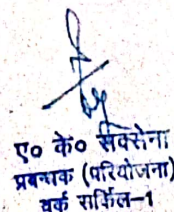 ए० के० सक्सेना
प्रबन्धक (परियोजना)
वर्क सर्किल-1